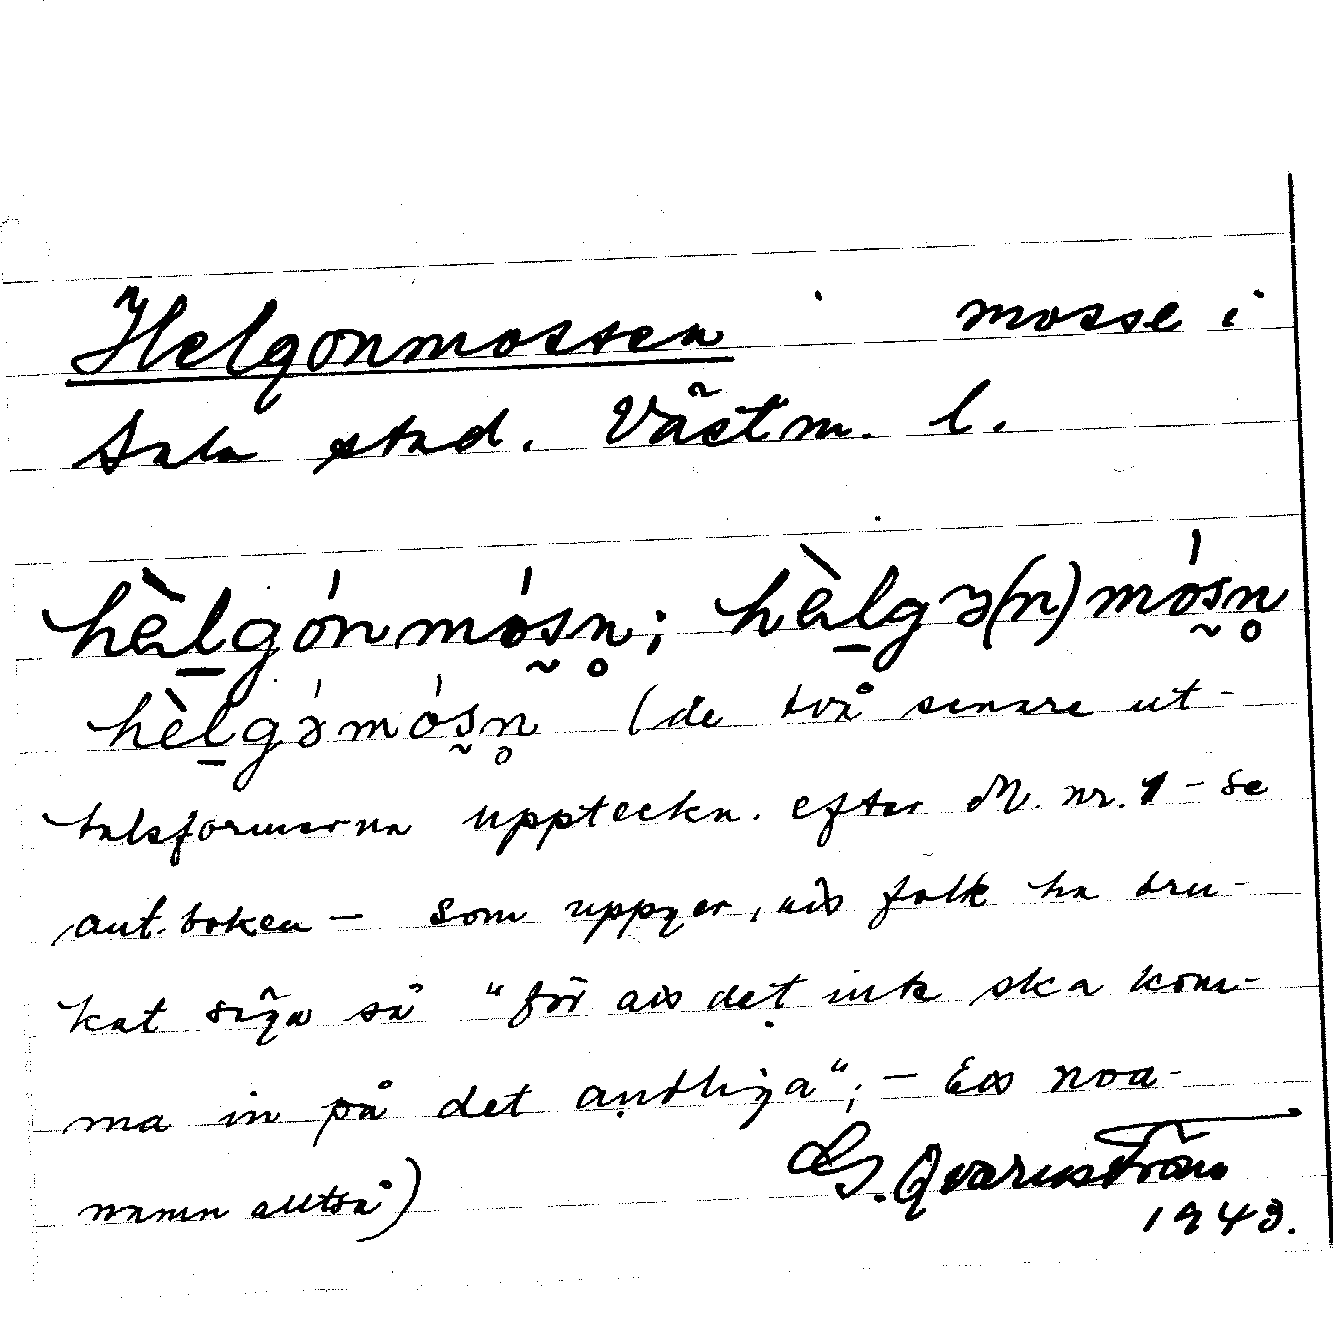 Helgonmossen mosse i
Sala stad. Västm. l.
hὲlgónmós̰n̥; hὲlgə(n)mós̰n̥
hὲlgə́mós̰n̥ (de två senare ut-
talsformerna uppteckn. efter M. nr. 1 - se
ant. boken - som uppger, att folk ha bru-
kat säga så "för att det inte ska kom-
ma in på det andliga"; - Ett noa-
namn alltså)
G. Qvarnström
1943.